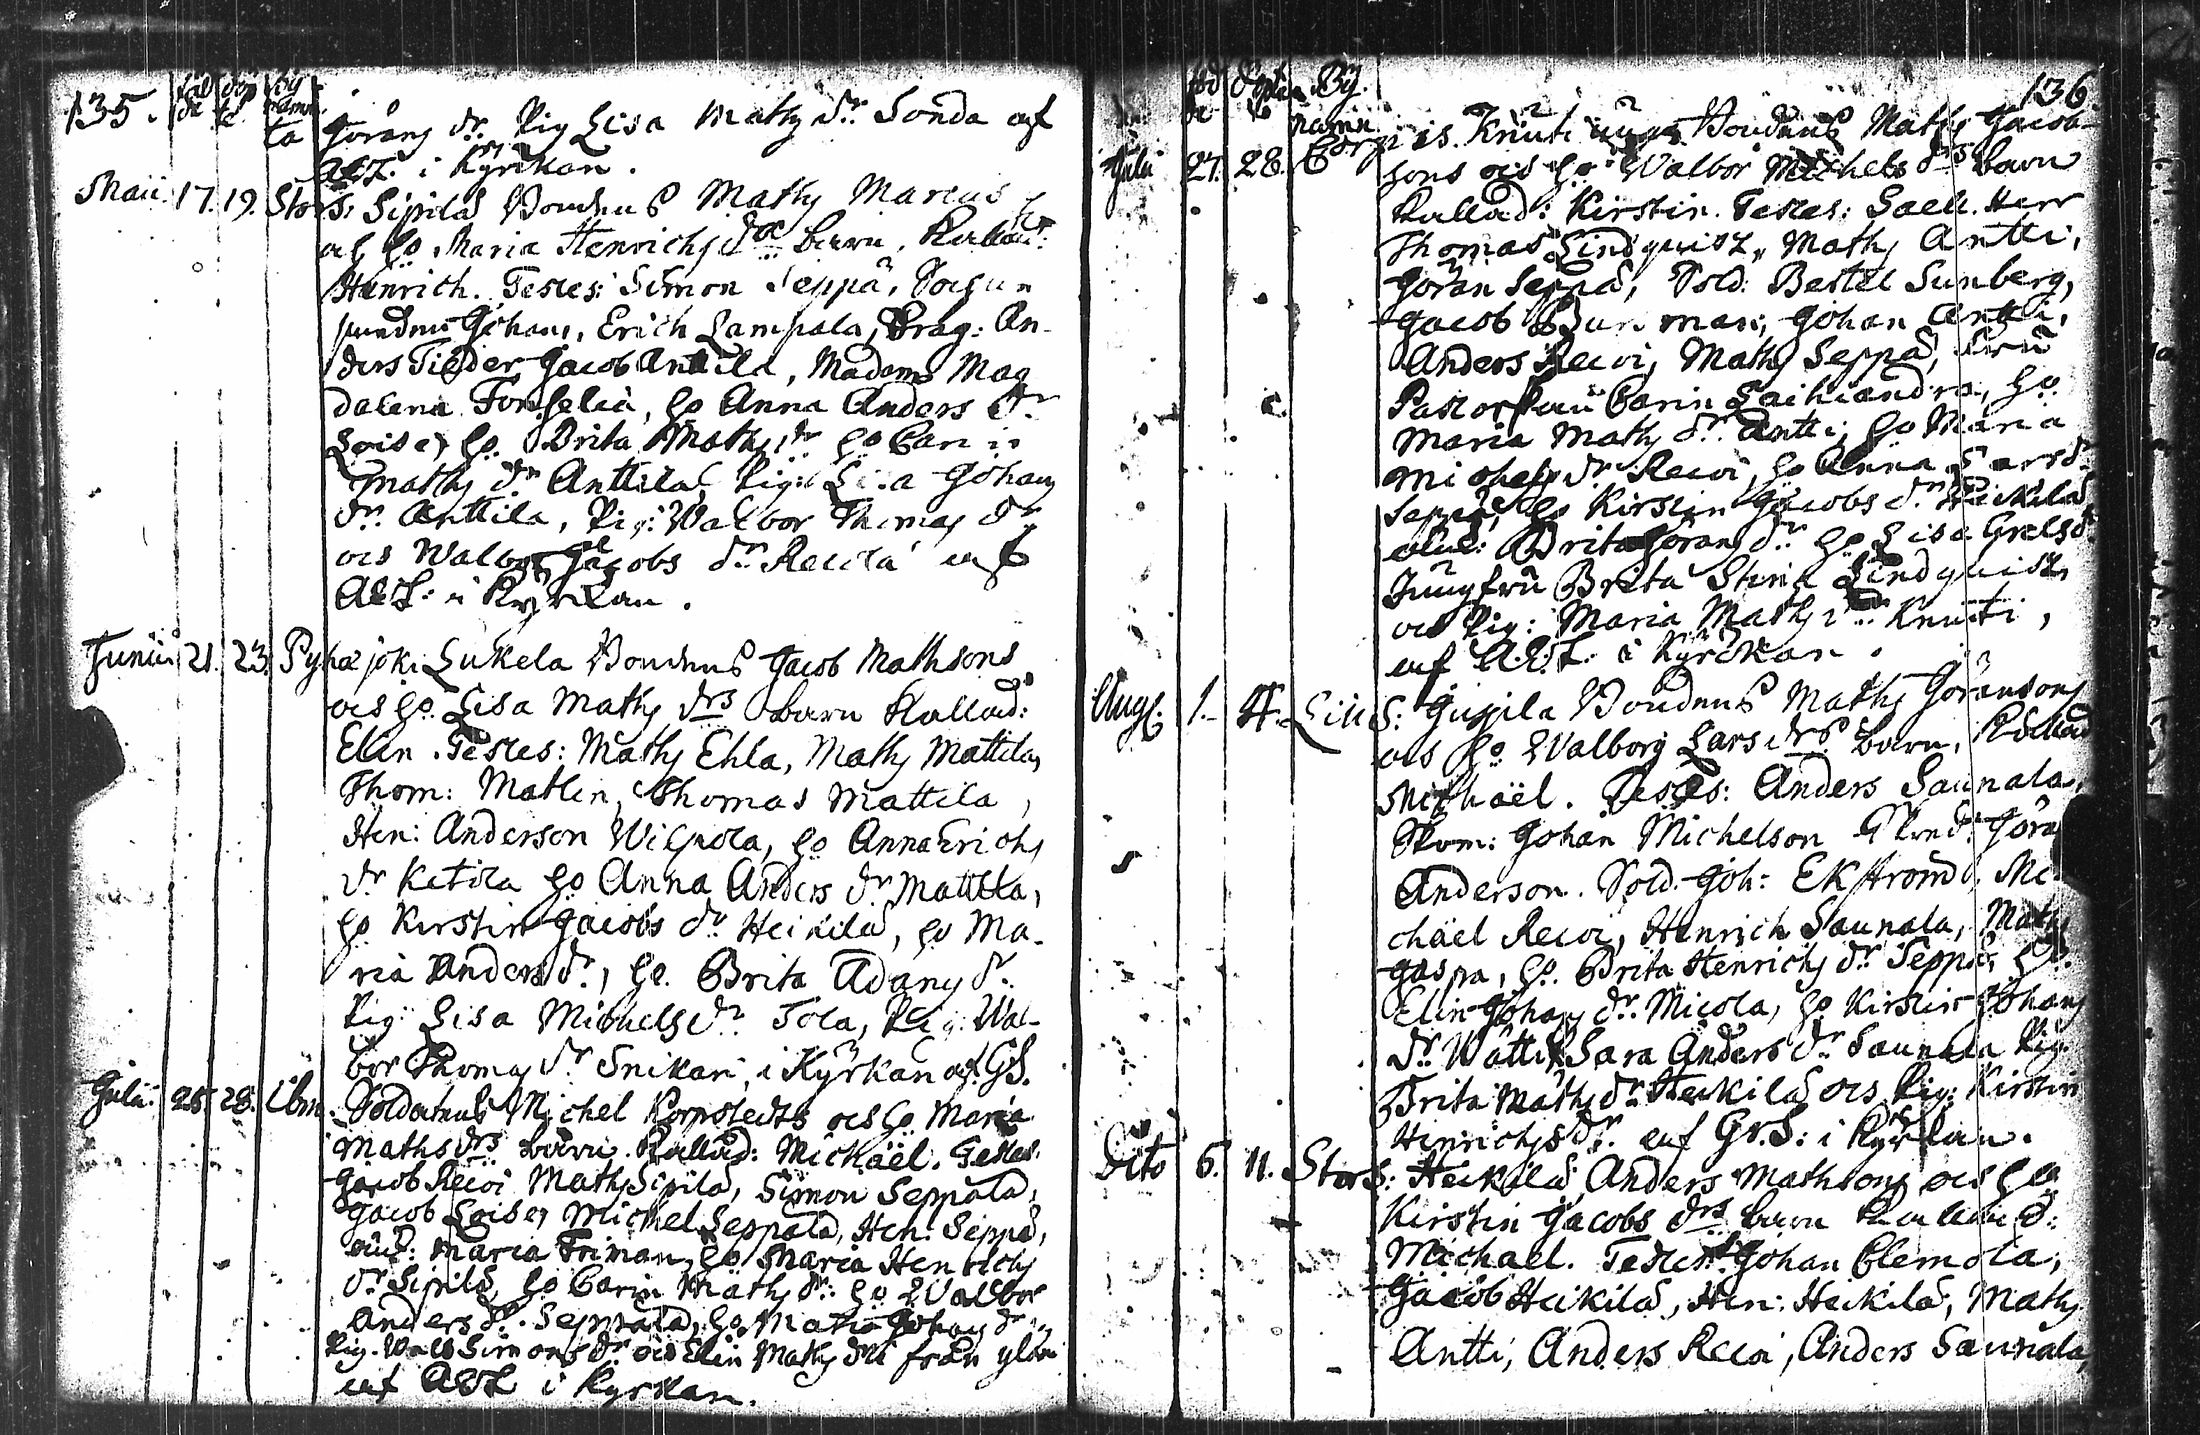 135.
föd de
döp te
by namn
ta Jörans dr. Pig Lisa Maths dr Sonda af
A&L: i Kÿrkan.
Maii 17. 19. Stors: Sipilä Bondens Maths Marcus
och ho Maria Henrichs drs barn, Kallad:
Henrich. Testes: Simon Seppä, Sochn
Johans, Erich Lampala, Drag: An-
ders Tieder Jacob Anttila, Madem Mag
dalena Forselia, ho Anna Anders dr
Loise, ho. Brita Maths dr ho Carin
Maths dr Anttila, Pig: Lisa Johans
dr. Anttila, Pig: Walbor Thomas dr
och Walbor Jacobs dr. Recola af
A&L: i Kÿrkan.
Junii 21. 23. Pyhæjoki Lukela Bondens Jacob Mathsons
och ho Lisa Maths drs barn Kallad:
Elin. Testes: Maths Ehla, Maths Mattila,
Thom: Matlin, Thomas Mattila,
Hen: Anderson Wilpola, ho Anna Erichs
dr Ketola ho Anna Anders dr Mattila,
ho Kirstin Jacobs dr Heikilä, ho Ma-
ria Anders dr, ho. Brita Adams dr.
Pig: Lisa Michels dr. Tola, Pig: Wal-
bor Thomas dr Snikari, i Kÿrkan af GS.
Julii: 25. 28. ibm. Soldatens Michel Kornstedts och ho Maria
Maths drs barn. Kallad: Mickäel. Testes:
Jacob Recoi Maths Sipilä, Simon Seppälä,
Jacob Loise, Michel Seppälä, Hen: Seppä,
Maria Friman, ho Maria Henrichs
dr Sipilä, ho Carin Maths dr: ho Walbor
Anders dr. Seppälä, ho Maria Johans dr
Pig. Walb Simons dr och Elin Maths dr från
af A&L i Kyrkan.
136.
föd de
döpte
By namn
Julii 27. 28. Corpis. Knuti unga Bondens Maths Jacob-
sons och ho Walbor Michels drs barn
Kallad: Kirstin. Testes: Sacell. Herr
Thomas Lindquist, Maths Antti,
Jöran Seppä, Sold: Bertel Sunberg,
Jacob Burman, Johan Antti,
Anders Recoi, Maths Seppä, Fru
Pastorskan Carin Laihiandra, ho.
Maria Maths dr. Antti, ho Maria
Michels dr. Recoi, ho Anna Lars dr.
Seppä, ho Kirstin Jacobs dr. Heikilä
Brita Jörans dr. ho Lisa Grels dr.
Jungfru Brita Stina Lindquist,
och Pig: Maria Maths dr. Knuti,
af A.&L: i Kÿrckan.
Aug: 1. 4. Liu S: Juppila Bondens Maths Jöransons
och ho Walborg Lars drs barn, Kallad
Michaël. Testes: Anders Saunala,
Skom: Johan Michelson Jöran
Anderson. Sold. Joh: Ekström, Mi-
chäel Recoi, Henrich Saunala, Maths
Jaspa, ho. Brita Henrichs dr. Seppä, ho.
Elin Johans dr. Micola, ho Kirstin Johans
dr. Watti Sara Anders dr. Saunala Pig.
Brita Maths dr. Heikilä och Pig: Kirstin
Henrichs dr. af Gr.S: i Kyrkan.
Dito 6. 11. Stors: Heikilä Anders Mathsons och ho
Kirstin Jacobs drs barn Kallad:
Michael. Testes: Johan Clemola,
Jacob Heikilä, Hen: Heikilä, Maths
Antti, Anders Recoi, Anders Saunala,